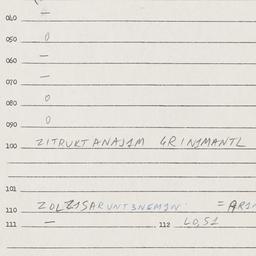 040 —
050 0
060 —
070 —
080 0
090 0
100 ZITRUKTANAJ1M GRINJMANTL
101
110 ZOLZ1SARUNTSNEMJN: = AR1
111 — 112 L0,51